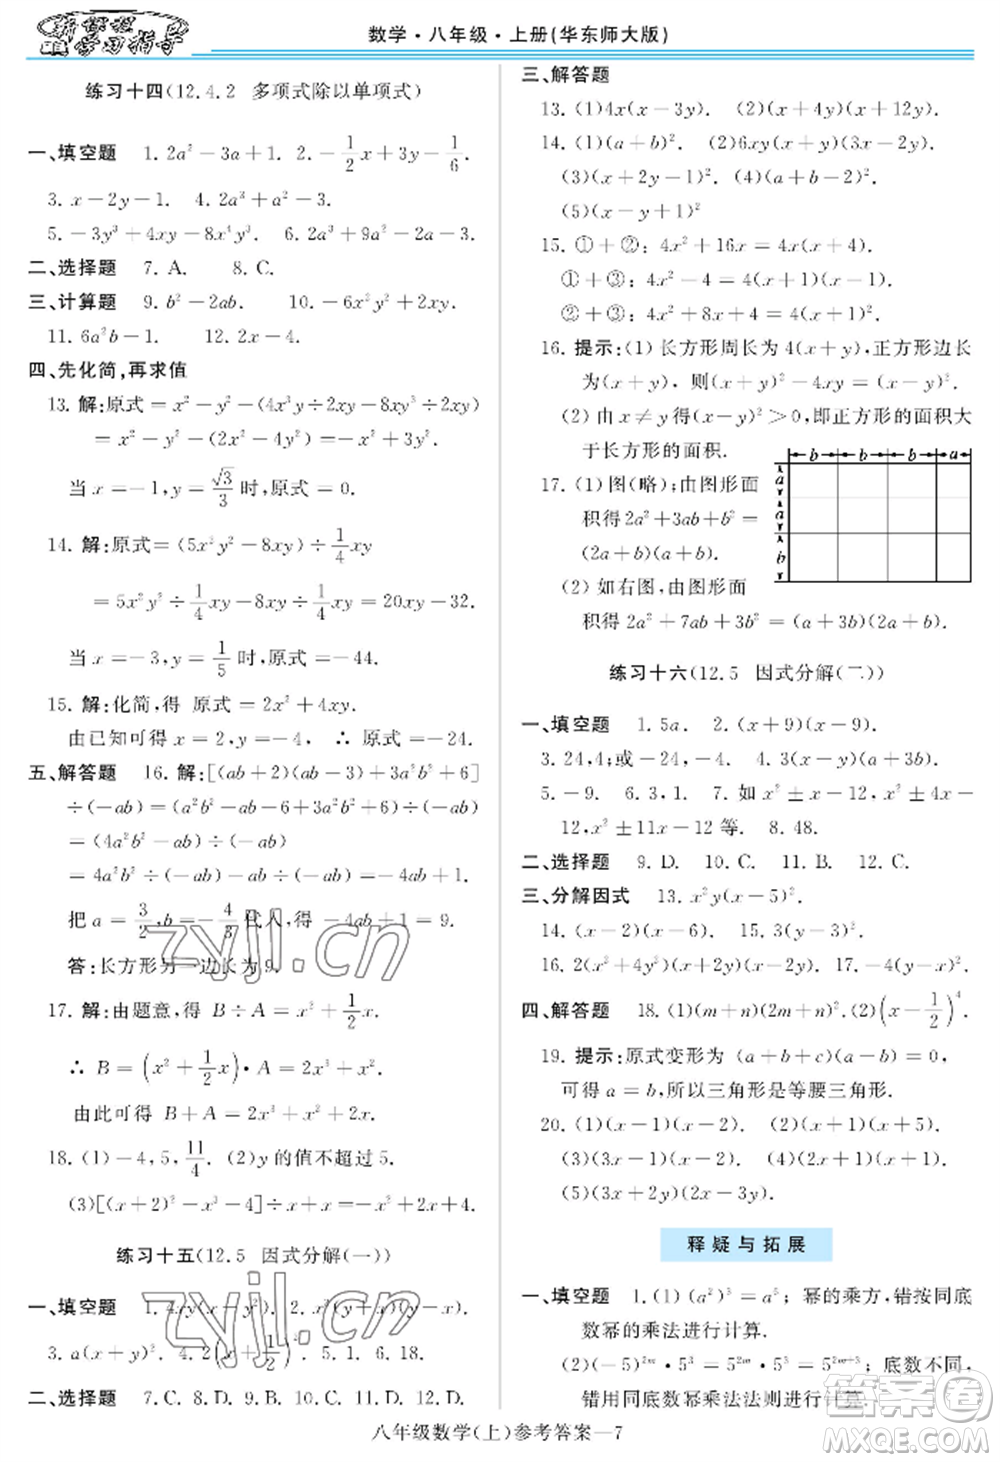 新课程
学习指导
数学·八年级·上册(华东师大版)
练习十四(12.4.2 多项式除以单项式)
一、填空题 1. 2a²－3a＋1. 2. －1/2x＋3y－1/6.
3. x－2y－1. 4. 2a³＋a²－3.
5. －3y³＋4xy－8x⁴y². 6. 2a³＋9a²－2a－3.
二、选择题 7. A. 8. C.
三、计算题 9. b²－2ab. 10. －6x²y²＋2xy.
11. 6a²b－1. 12. 2x－4.
四、先化简,再求值
13. 解:原式＝x²－y²－(4x³y÷2xy－8xy³÷2xy)
＝x²－y²－(2x²－4y²)＝－x²＋3y².
当x＝－1,y＝√3/3时,原式＝0.
14. 解:原式＝(5x²y²－8xy)÷1/4xy
＝5x²y²÷1/4xy－8xy÷1/4xy＝20xy－32.
当x＝－3,y＝1/5时,原式＝－44.
15. 解:化简,得 原式＝2x²＋4xy.
由已知可得x＝2,y＝－4, ∴ 原式＝－24.
五、解答题 16. 解:[(ab＋2)(ab－3)＋3a²b²＋6]
÷(－ab)＝(a²b²－ab－6＋3a²b²＋6)÷(－ab)
＝(4a²b²－ab)÷(－ab)
＝4a²b²÷(－ab)－ab÷(－ab)＝－4ab＋1.
把a＝3/2,b＝－4/3代入,得－4ab＋1＝9.
答:长方形另一边长为9.
17. 解:由题意,得 B÷A＝x²＋1/2x.
∴ B＝(x²＋1/2x)·2x＝2x³＋x².
由此可得 B＋A＝2x³＋x²＋2x.
18. (1)－4,5,11/4. (2)y的值不超过5.
(3)[(x＋2)²－x³－4]÷x＋x²＝x＋4.
练习十五(12.5 因式分解(一))
一、填空题 1. 4xy(x－2y). 2. x²(y＋x)(y－x).
3. a(x＋y)². 4. 2(x＋1/2)². 5. 1. 6. 18.
二、选择题 7. C. 8. D. 9. D. 10. C. 11. D. 12. B.
三、解答题
13. (1)4x(x－3y). (2)(x＋4y)(x＋12y).
14. (1)(a＋b). (2)6xy(x＋y)(3x－2y).
(3)(x＋y)(x－y). (4)(a＋b)(a＋b－c).
(5)(x－y＋1)²
15. ①＋②：4x²＋16x＝4x(x＋4).
①＋③：4x²－4＝4(x＋1)(x－1).
②＋③：4x²＋8x＋4＝4(x＋1)².
16. 提示:(1)长方形周长为4(x＋y),正方形边长
为(x＋y),则(x＋y)²－4xy＝(x－y)².
(2)由x≠y得(x－y)²＞0,即正方形的面积大
于长方形的面积.
17. (1)图(略);由图形面
积得2a²＋3ab＋b²＝
(2a＋b)(a＋b).
(2)如右图,由图形面
积得2a²＋7ab＋3b²＝(a＋3b)(2a＋b).
b b b a
a
a
b
练习十六(12.5 因式分解(二))
一、填空题 1. 5a. 2. (x＋9)(x－9).
3. 24,4;或－24,－4. 4. (x－y)(x－y－1).
5. －9. 6. 1. 7. 如x²±x－12,x²±4x－
12,x²±11x－12等. 8. 48.
二、选择题 9. D. 10. C. 11. B. 12. C.
三、分解因式 13. x²y(x－5)².
14. (x－2)(x－6). 15. 3(x－2y)².
16. 2(x²＋4y²)(x＋2y)(x－2y). 17. －4(x－y)².
四、解答题 18. (1)(m＋n)(2m＋n)². (2)(x－1/2)⁴.
19. 提示:原式变形为(a＋b＋c)(a－b)＝0,
可得a＝b,所以三角形是等腰三角形.
20. (1)(x－1)(x－2). (2)(x＋1)(x＋5).
(3)(x＋3)(x－5). (4)(x－2y)(x＋5y).
(5)(x－7y)(x－3y).
释疑与拓展
一、填空题 1. (1)(a²)³＝a⁵；幂的乘方,错按同底
数幂的乘法进行计算.
(2)(－5)²ᵐ·5³＝5²ᵐ·5³＝5²ᵐ⁺³；底数不同,
错用同底数幂乘法法则进行计算.
八年级数学(上)参考答案—7
zyjl.cn
zyjl.cn
答案圈
MXQE.COM